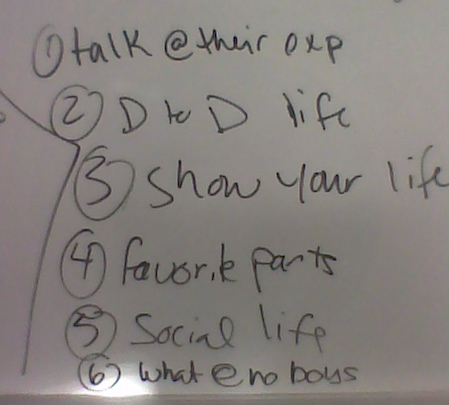 ① talk @ their exp
② D to D life
③ Show your life
④ favorite parts
⑤ Social life
⑥ what @ no boys